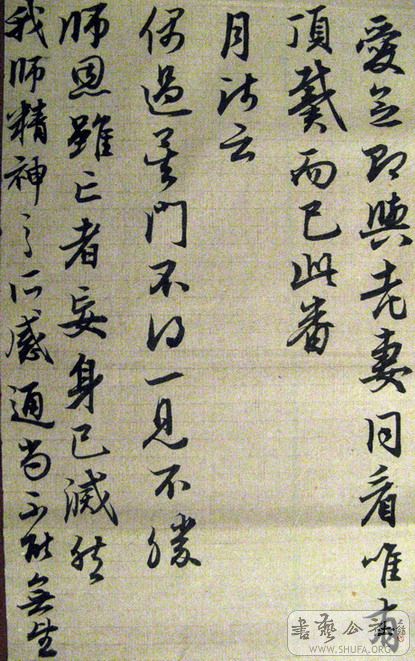 愛即與老妻同看唯有
頂戴而已此番
月師云
偶過吳門不得一見不勝
師恩雖亡者妄身已滅然
我師精神之所感通尚不能無生
書藝公社
WWW.SHUFA.ORG